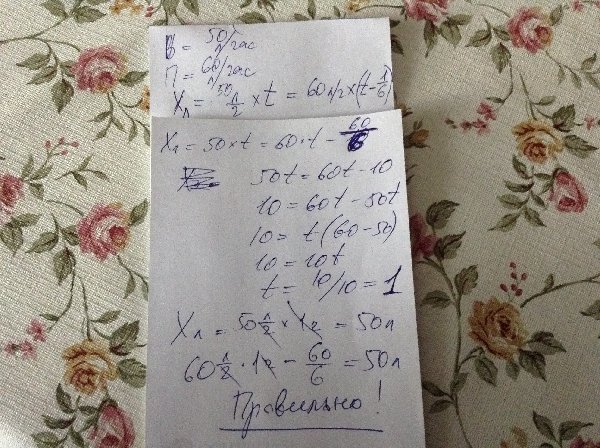 В = 50 л/час
П = 60 л/час
Xл = 50 л/г × t = 60 л/г × (t - 1/6)
Xл = 50 × t = 60 · t - 60/6
50t = 60t - 10
10 = 60t - 50t
10 = t (60 - 50)
10 = 10t
t = 10/10 = 1
Xл = 50 л/г × 1г = 50л
60 л/г · 1г - 60/6 = 50л
Правильно!